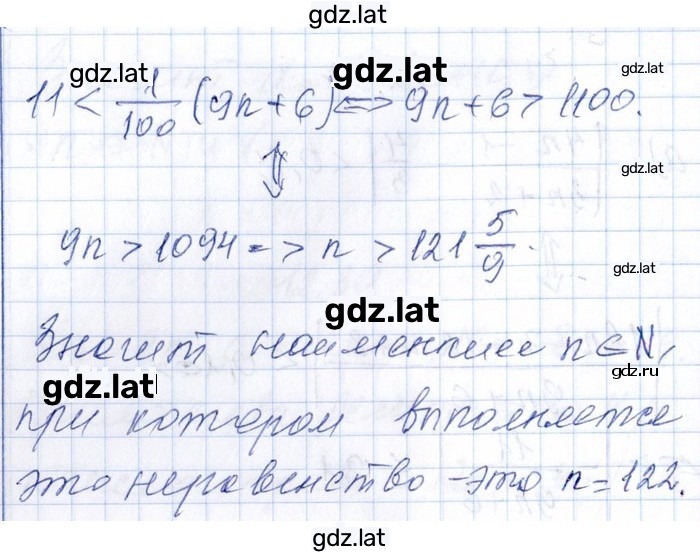 gdz.lat
gdz.lat gdz.lat
11 < 1/100 (9n+6) <=> 9n+6 > 1100.
gdz.lat
⇕
9n > 1094 => n > 121 5/9.
gdz.lat
gdz.lat
Значит наименьшее n ∈ N,
gdz.ru
gdz.lat
при котором выполняется
gdz.lat
это неравенство - это n = 122.
gdz.lat